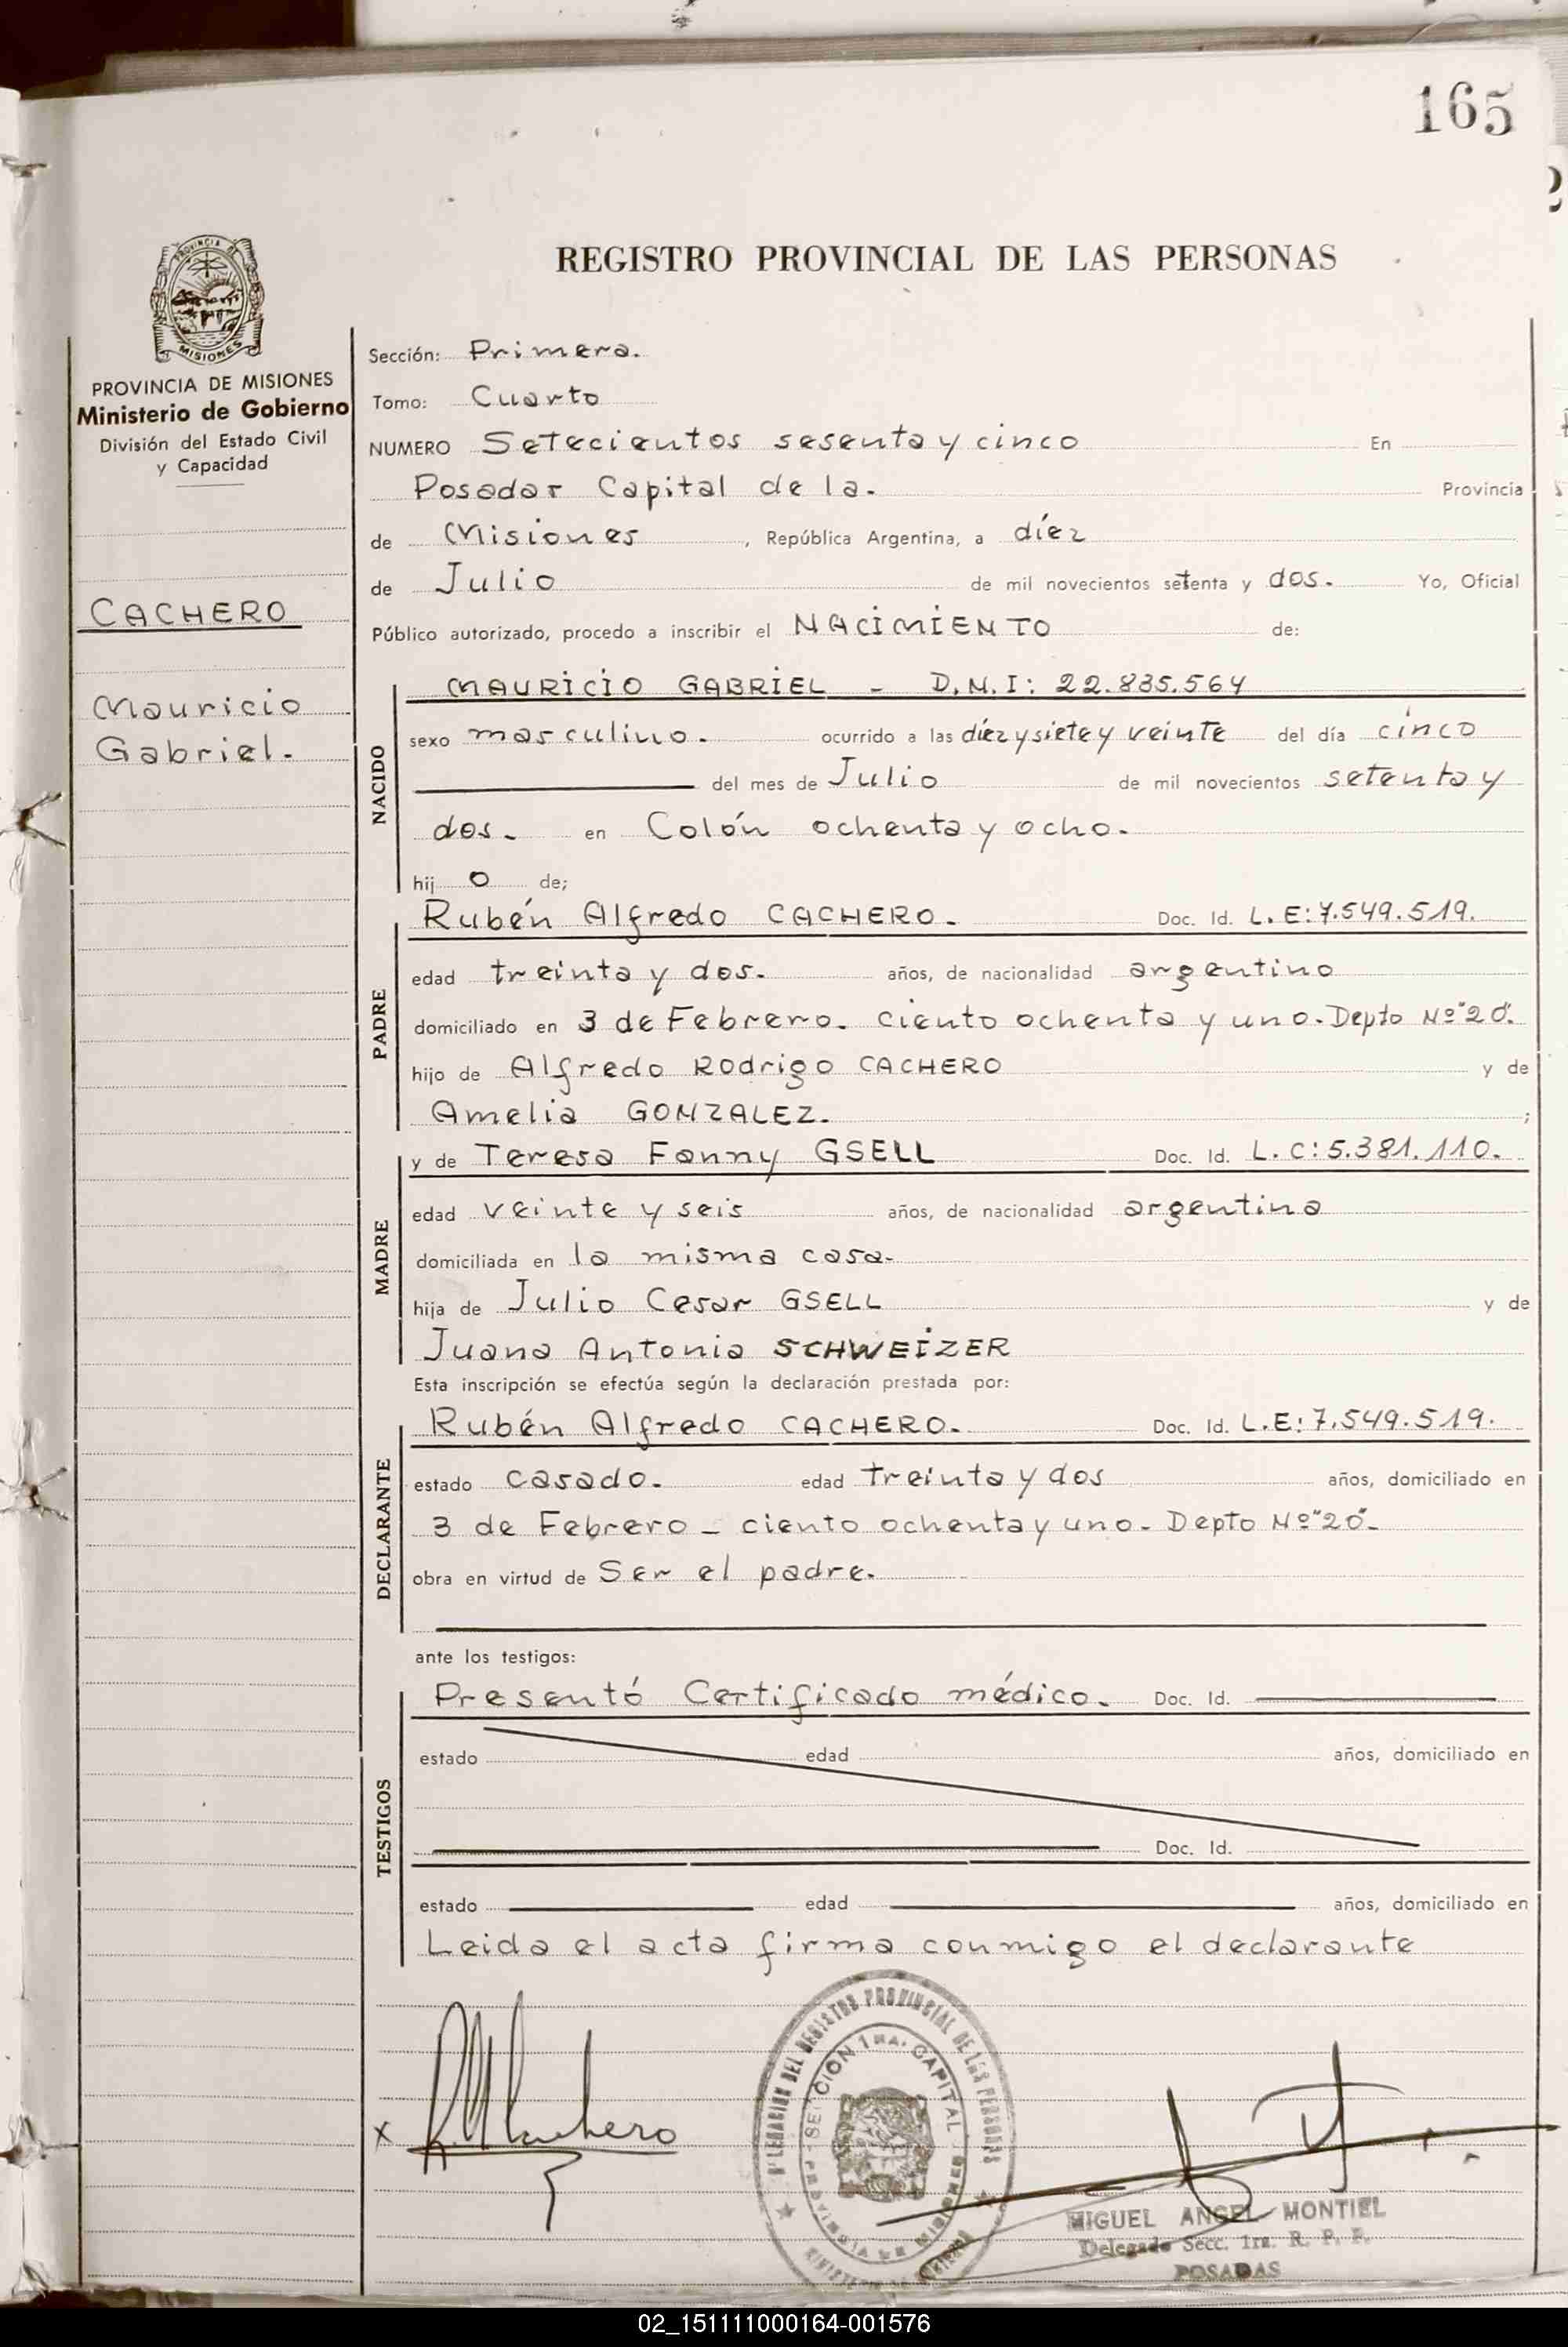 165
REGISTRO PROVINCIAL DE LAS PERSONAS
PROVINCIA DE MISIONES
Ministerio de Gobierno
División del Estado Civil
y Capacidad
CACHERO
Mauricio
Gabriel.
Sección: Primera.
Tomo: Cuarto
NUMERO Setecientos sesenta y cinco En
Posadas Capital de la. Provincia
de Misiones, República Argentina, a díez
de Julio de mil novecientos setenta y dos. Yo, Oficial
Público autorizado, procedo a inscribir el NACIMIENTO de:
NACIDO
MAURICIO GABRIEL - D.N.I: 22.835.564
sexo masculino. ocurrido a las díez y siete y veinte del día cinco
del mes de Julio de mil novecientos setenta y
dos. en Colón ochenta y ocho.
hij o de;
PADRE
Rubén Alfredo CACHERO. Doc. Id. L.E: 7.549.519.
edad treinta y dos. años, de nacionalidad argentino
domiciliado en 3 de Febrero. ciento ochenta y uno. Depto Nº "20".
hijo de Alfredo Rodrigo CACHERO y de
Amelia GONZALEZ. ;
MADRE
y de Teresa Fanny GSELL Doc. Id. L.C: 5.381.110.
edad veinte y seis años, de nacionalidad argentina
domiciliada en la misma casa.
hija de Julio Cesar GSELL y de
Juana Antonia SCHWEIZER
Esta inscripción se efectúa según la declaración prestada por:
DECLARANTE
Rubén Alfredo CACHERO. Doc. Id. L.E: 7.549.519.
estado casado. edad treinta y dos años, domiciliado en
3 de Febrero - ciento ochenta y uno. Depto Nº "20".
obra en virtud de Ser el padre.
ante los testigos:
TESTIGOS
Presentó Certificado médico. Doc. Id.
estado edad años, domiciliado en
Doc. Id.
estado edad años, domiciliado en
Leida el acta firma conmigo el declarante
x
DELEGACION DEL REGISTRO PROVINCIAL DE LAS PERSONAS
SECCION 1RA. CAPITAL
MIGUEL ANGEL MONTIEL
Delegado Secc. 1ra. R. P. P.
POSADAS
02_151111000164-001576